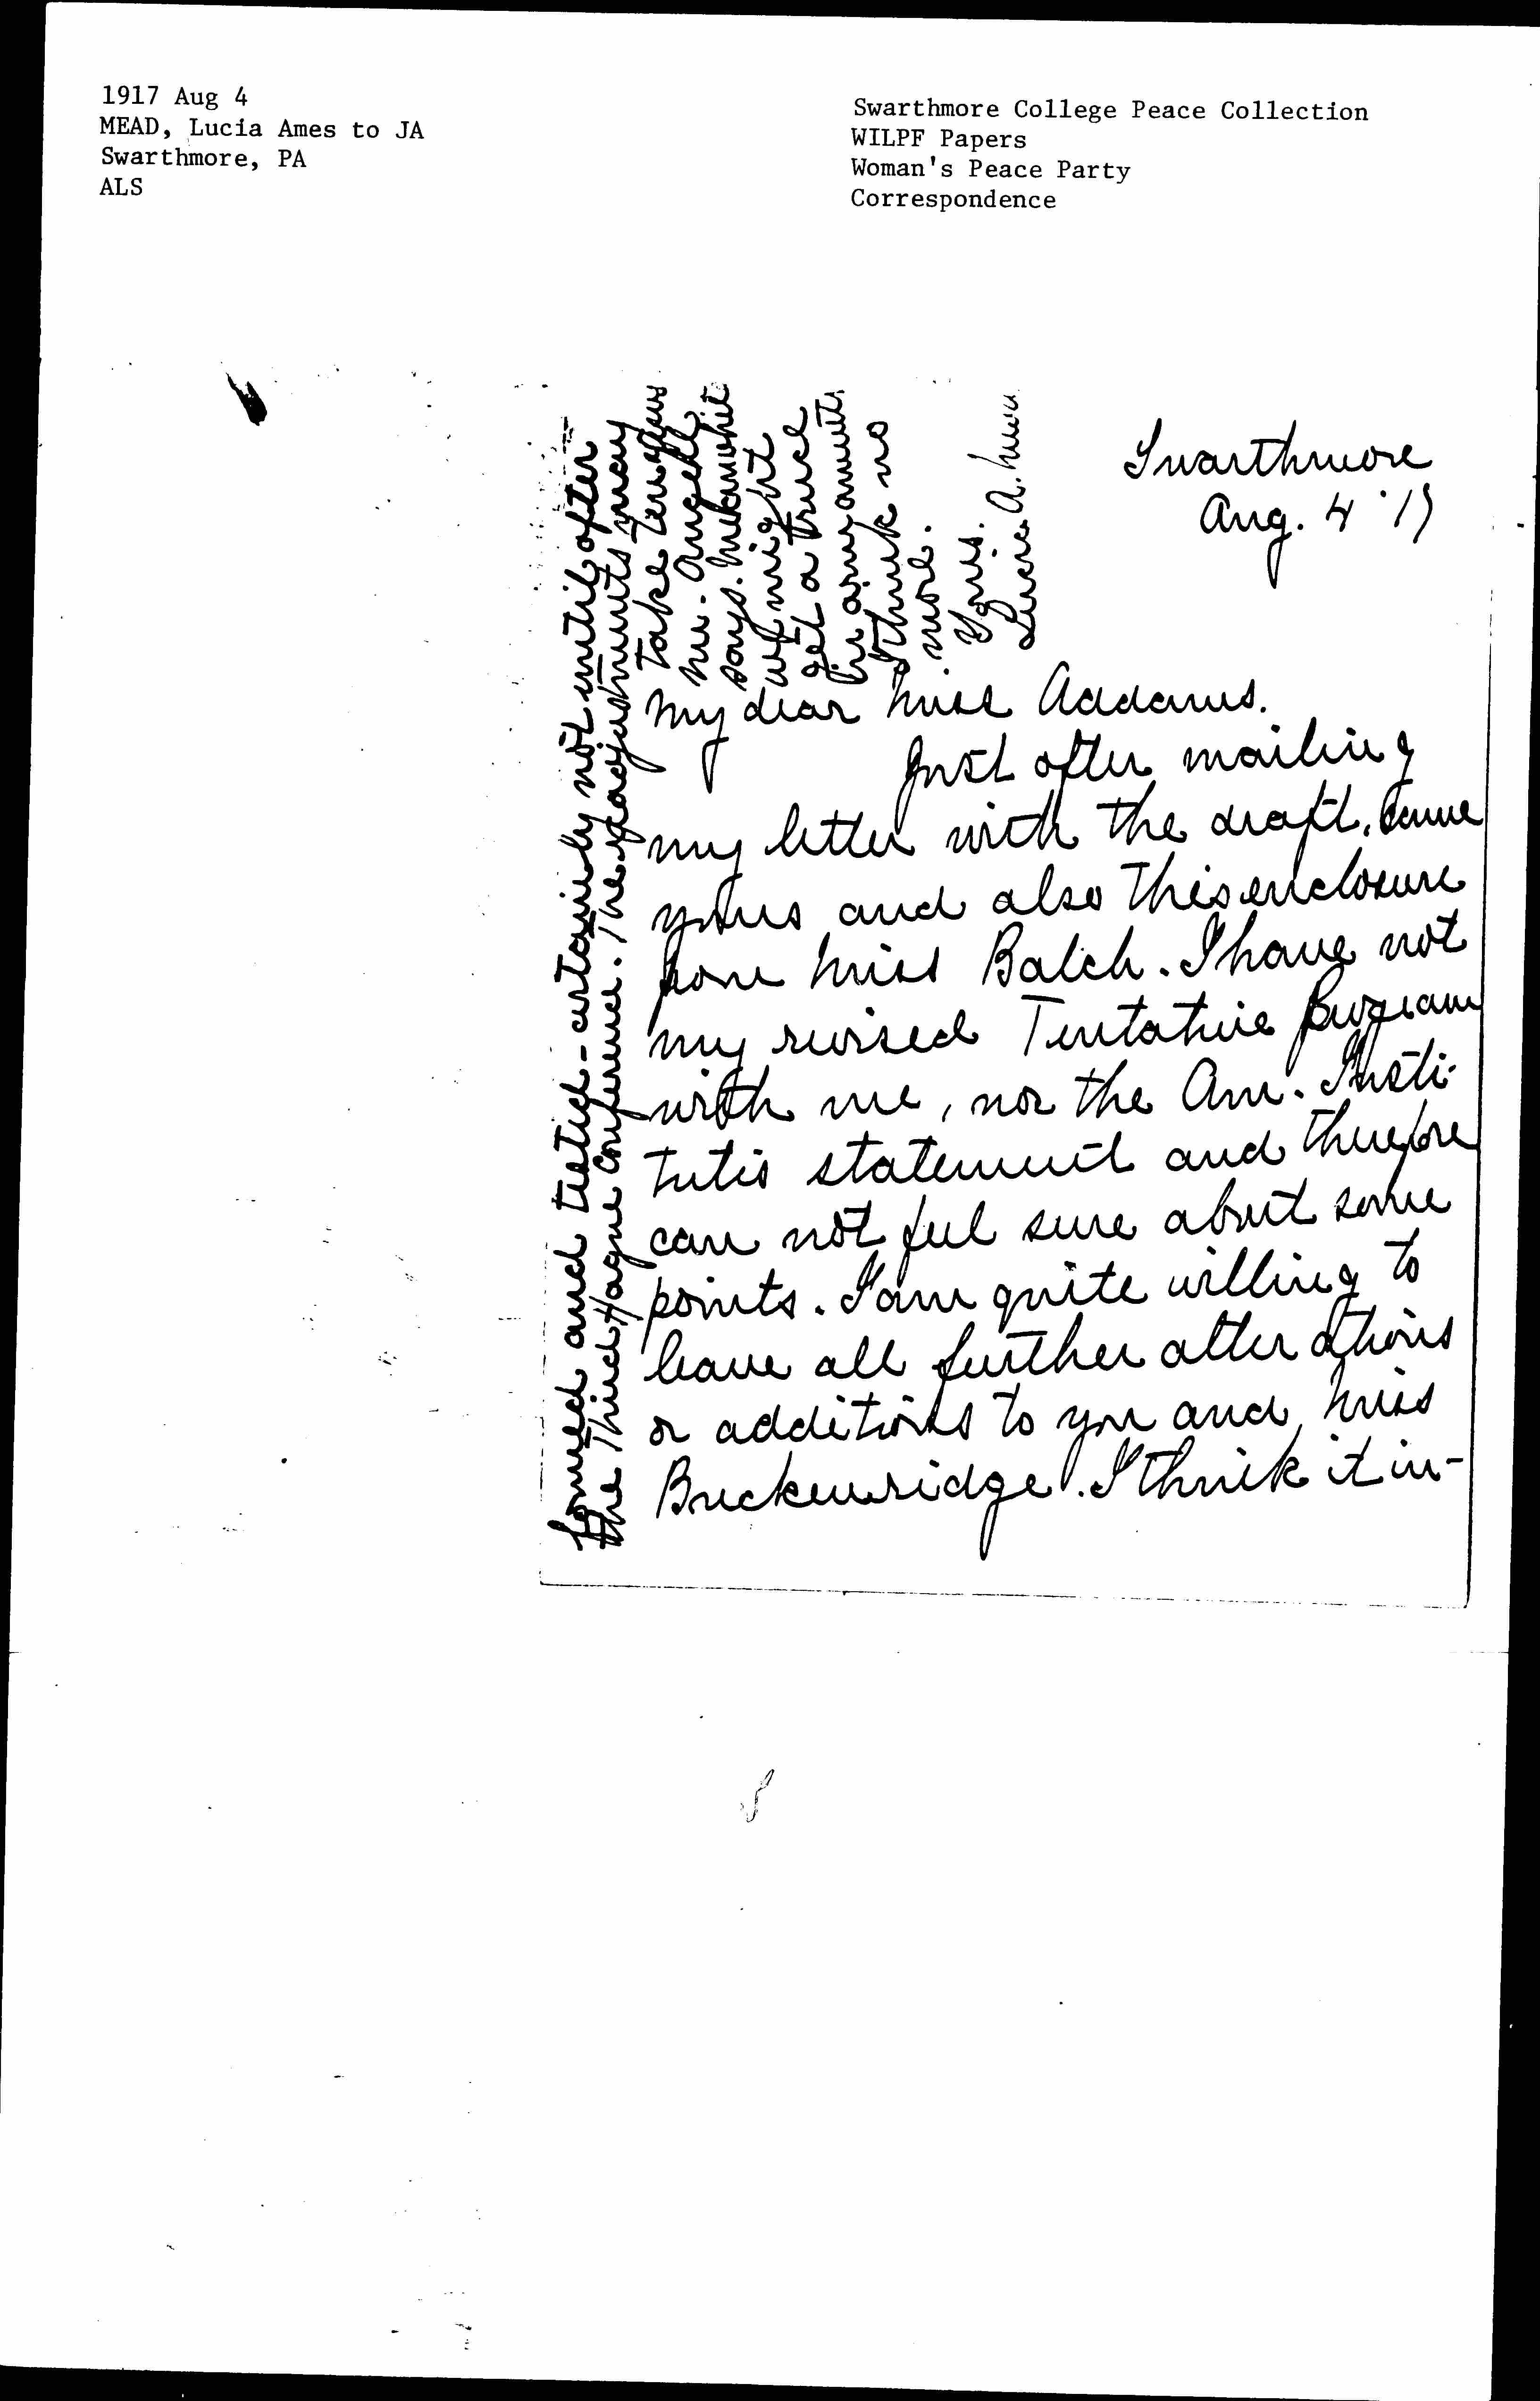 1917 Aug 4
MEAD, Lucia Ames to JA
Swarthmore, PA
ALS
Swarthmore College Peace Collection
WILPF Papers
Woman's Peace Party
Correspondence
Swarthmore
Aug. 4 '17
My dear Miss Addams.
Just after mailing
my letter with the draft, came
yours and also this enclosure
from Miss Balch. I have not
my revised Tentative Program
with me, nor the Am. Insti-
tutes statement and therefore
can not feel sure about some
points. I am quite willing to
leave all further alterations
or additions to you and Miss
Breckenridge. I think it in-
formed and tested - certainly not until after
the Third Hague Conference. The readjustments may
take ten years
Mr. Angell
says. Meanwhile
we might
get a truce
in armaments
I think no
more.
Yours.
Lucia A. Mead